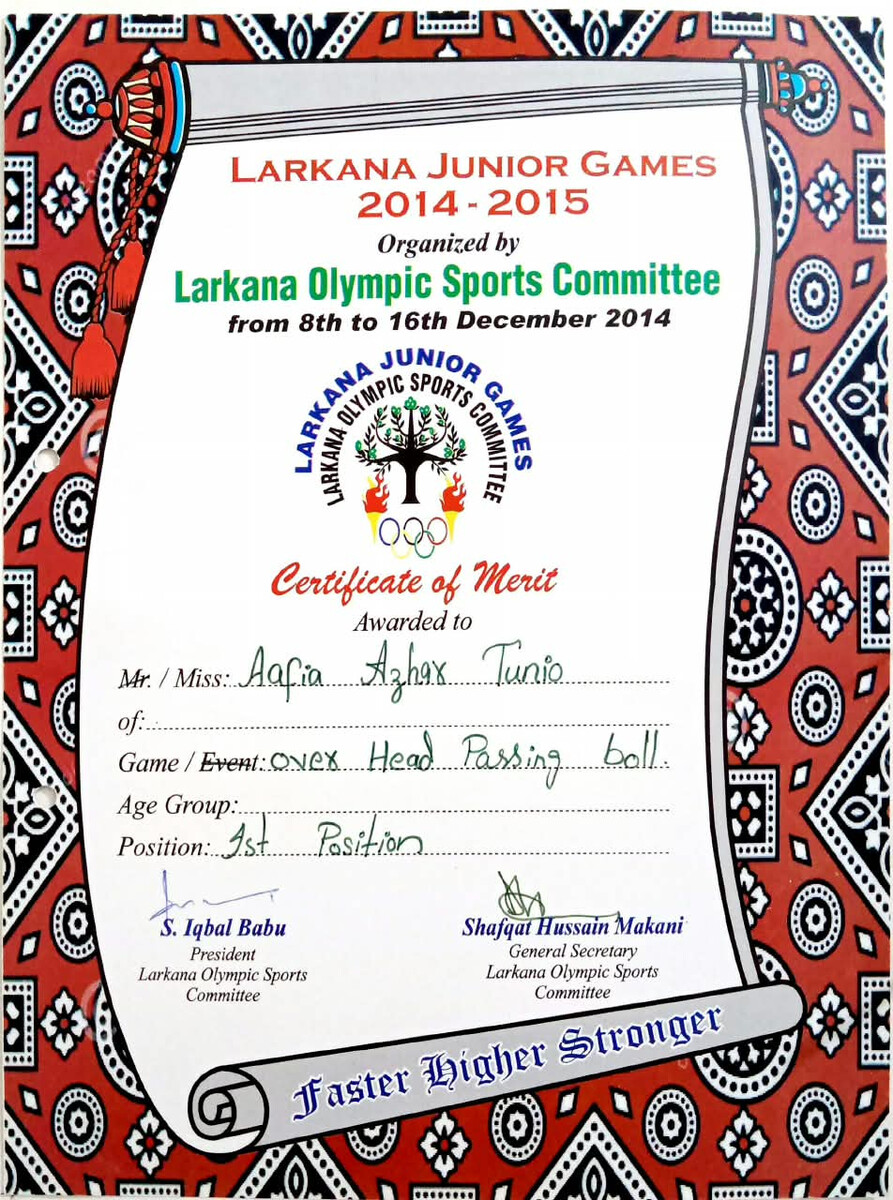 LARKANA JUNIOR GAMES
2014 - 2015
Organized by
Larkana Olympic Sports Committee
from 8th to 16th December 2014
LARKANA JUNIOR GAMES
LARKANA OLYMPIC SPORTS COMMITTEE
Certificate of Merit
Awarded to
Mr. / Miss: Aafia Azhar Tunio
of:
Game / Event: over Head Passing ball.
Age Group:
Position: 1st Position
S. Iqbal Babu
President
Larkana Olympic Sports
Committee
Shafqat Hussain Makani
General Secretary
Larkana Olympic Sports
Committee
Faster Higher Stronger